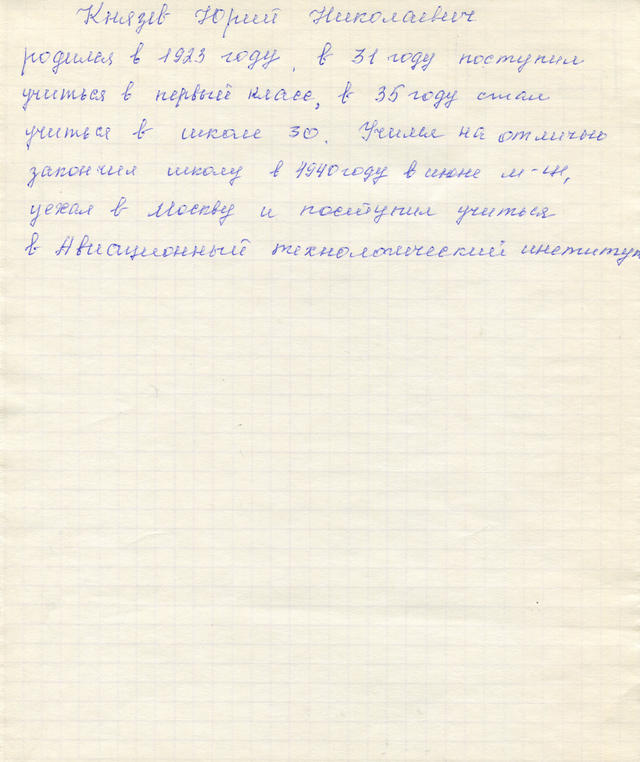 Князев Юрий Николаевич
родился в 1923 году, в 31 году поступил
учиться в первый класс, в 35 году стал
учиться в школе 30. Учился на отлично
закончил школу в 1940 году в июне м-це,
уехал в Москву и поступил учиться
в Авиационный технологический институт